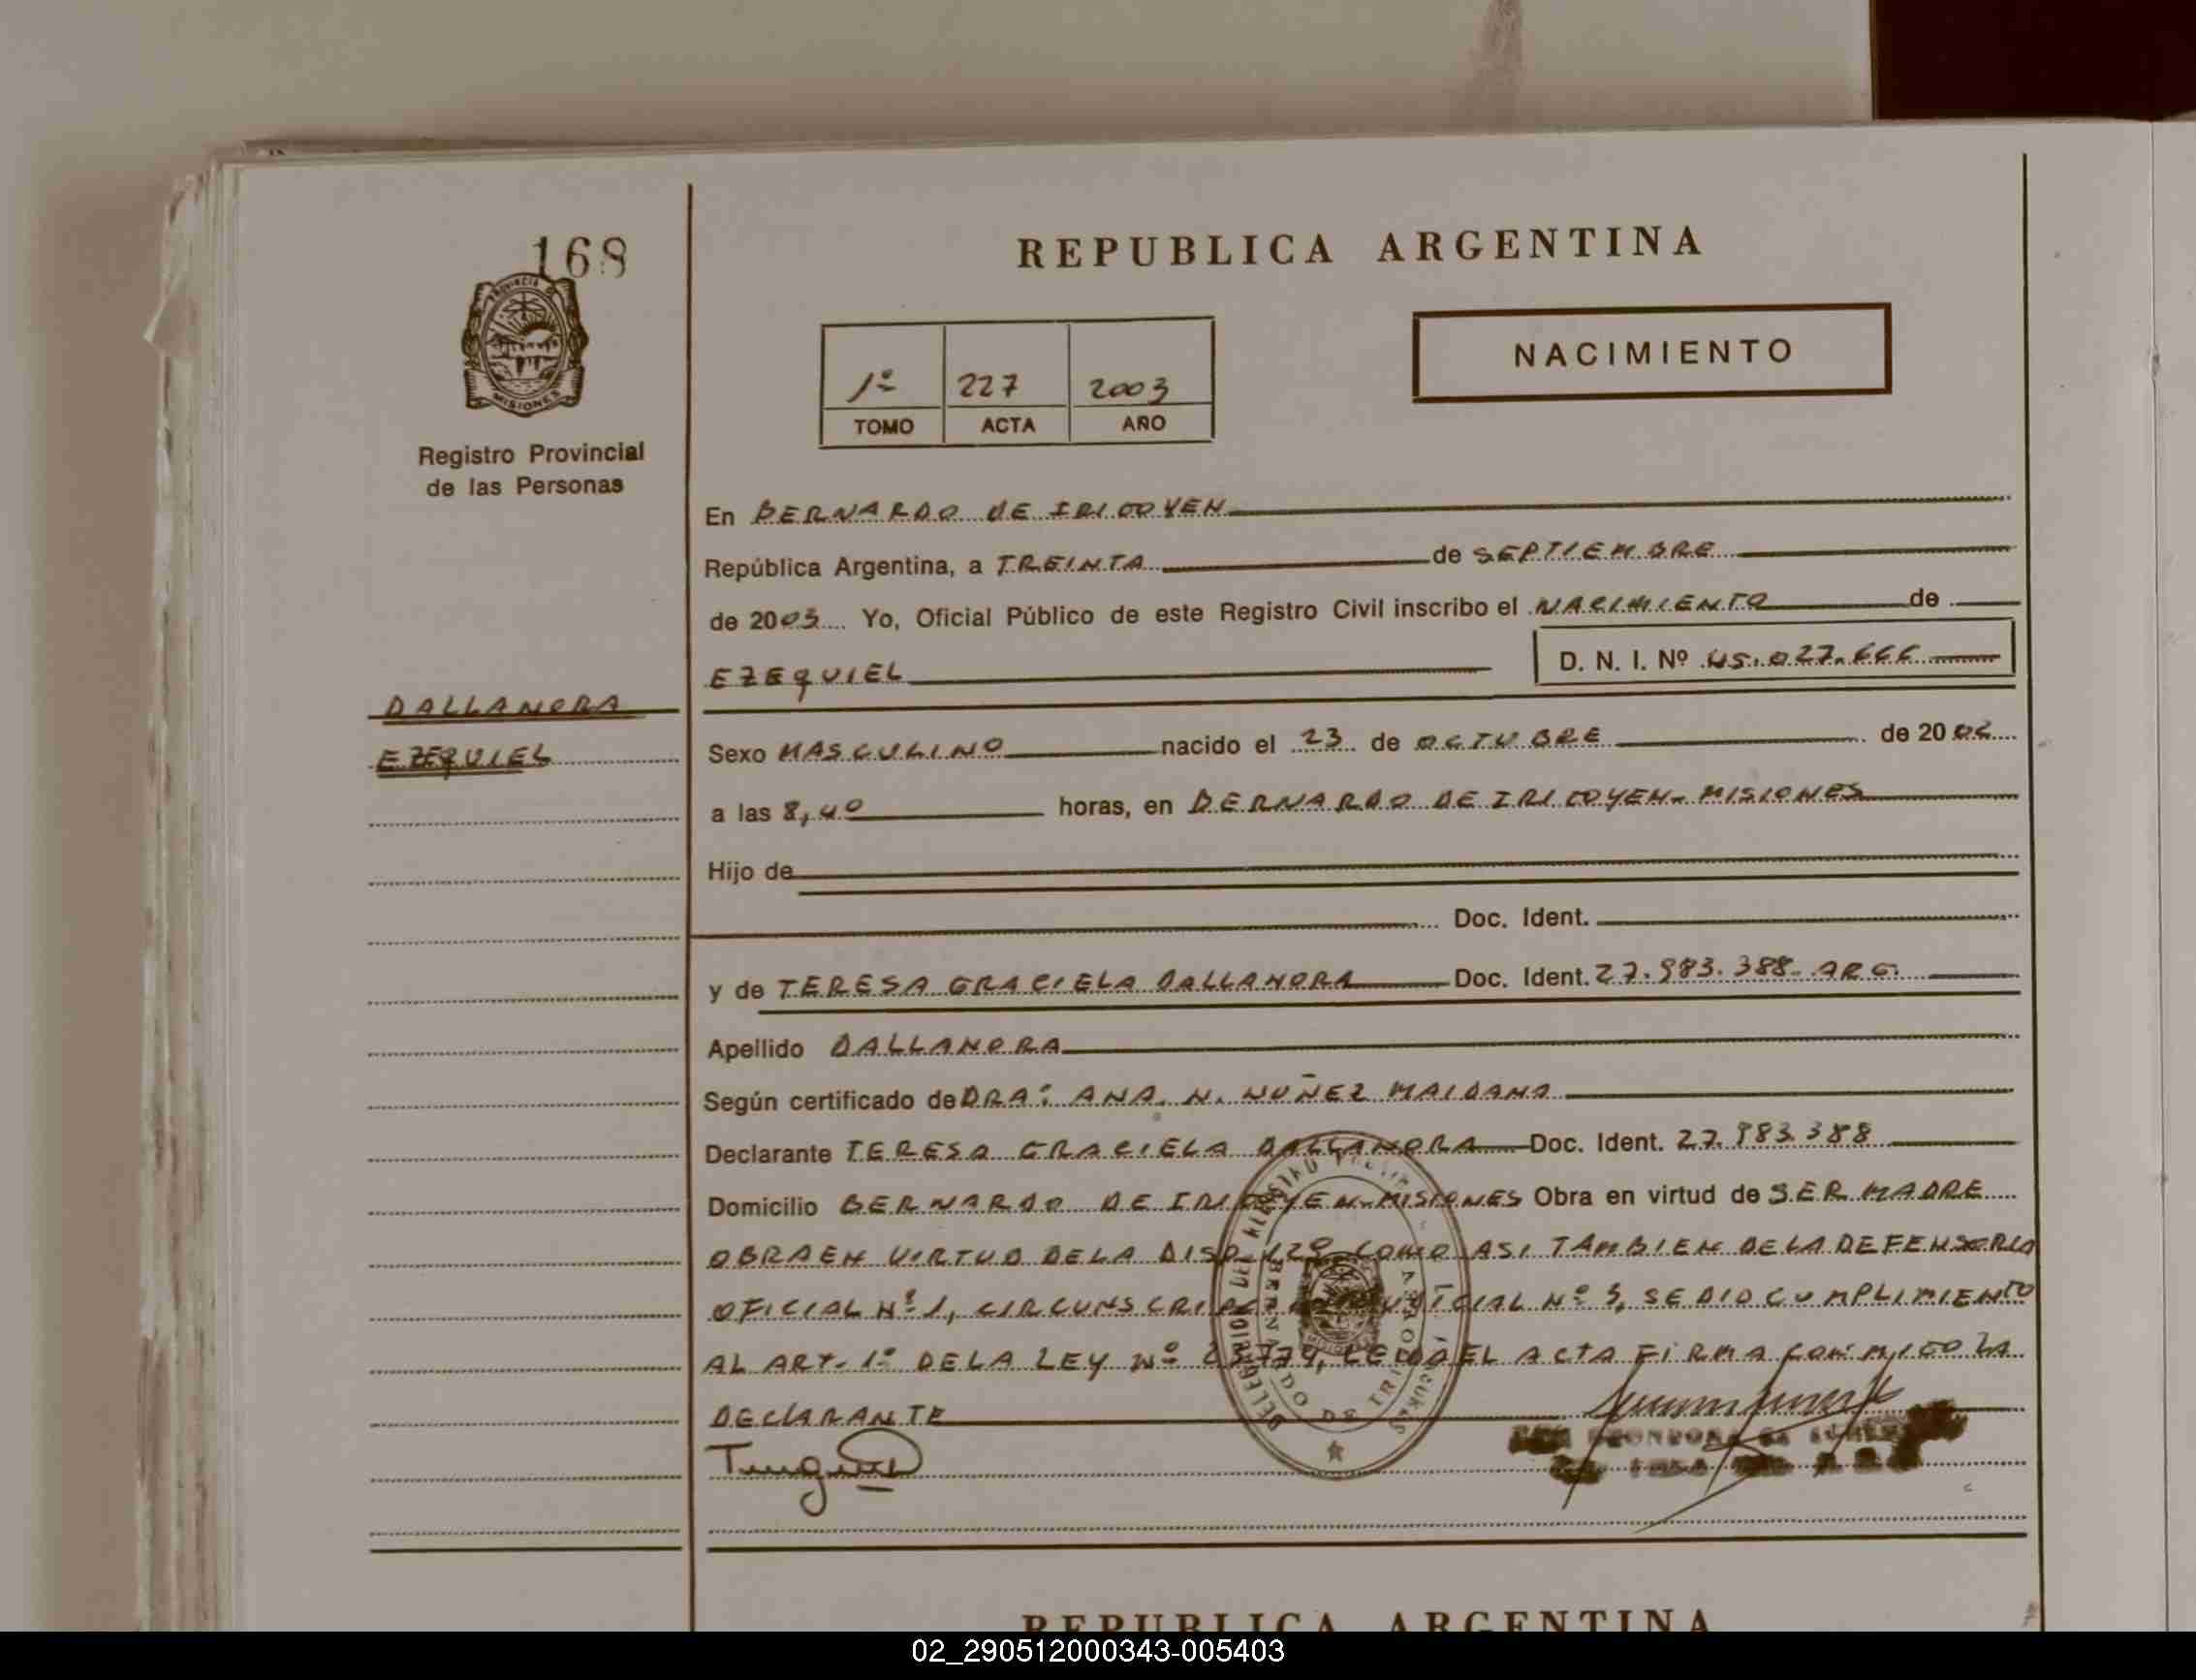 168
PROVINCIA DE
MISIONES
Registro Provincial
de las Personas
DALLANORA
EZEQUIEL
REPUBLICA ARGENTINA
1º 227 2003
TOMO ACTA AÑO
NACIMIENTO
En BERNARDO DE IRIGOYEN
República Argentina, a TREINTA de SEPTIEMBRE
de 2003 Yo, Oficial Público de este Registro Civil inscribo el NACIMIENTO de
EZEQUIEL D. N. I. Nº 45.027.666
Sexo MASCULINO nacido el 23 de OCTUBRE de 2002
a las 8,40 horas, en BERNARDO DE IRIGOYEN- MISIONES
Hijo de
Doc. Ident.
y de TERESA GRACIELA DALLANORA Doc. Ident. 27.983.388- ARG.
Apellido DALLANORA
Según certificado de DRA: ANA. N. NUÑEZ MAIDANA
Declarante TERESA GRACIELA DALLANORA Doc. Ident. 27.983.388
Domicilio BERNARDO DE IRIGOYEN-MISIONES Obra en virtud de SER MADRE
OBRA EN VIRTUD DE LA DISP. COMO ASI TAMBIEN DE LA DEFENSORIA
OFICIAL Nº 1, CIRCUNSCRIPCION JUDICIAL Nº 3, SE DIO CUMPLIMIENTO
AL ART. 1º DE LA LEY Nº LEIDA EL ACTA FIRMA CONMIGO LA
DECLARANTE
BERNARDO DE IRIGOYEN
REPUBLICA ARGENTINA
02_290512000343-005403